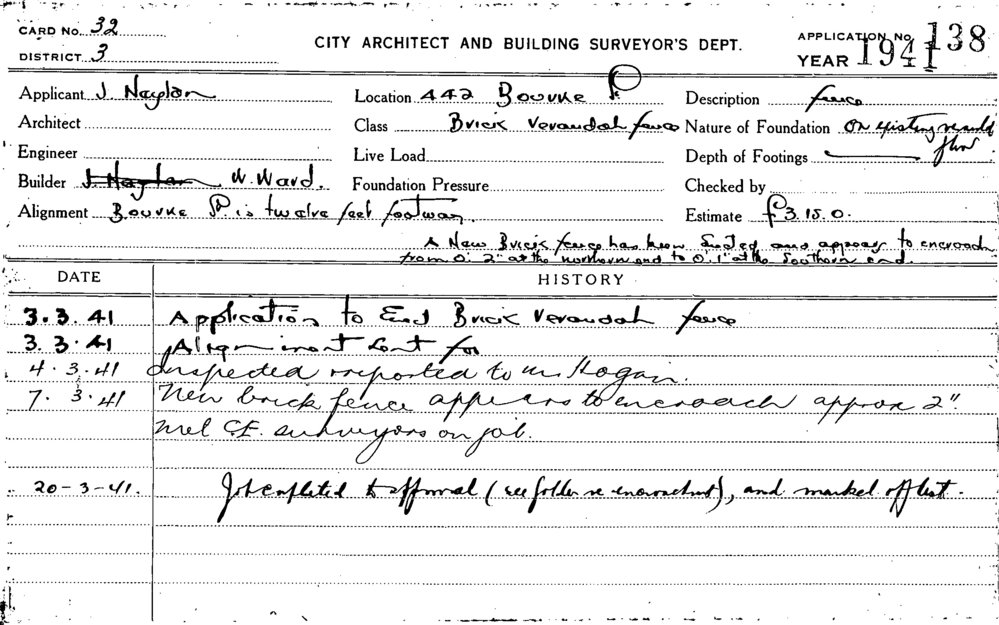 CARD No. 32
DISTRICT 3
CITY ARCHITECT AND BUILDING SURVEYOR'S DEPT.
APPLICATION No. 138
YEAR 1941
Applicant J. Naylan
Location 442 Bourke St.
Description fence
Architect
Class Brick Verandah fence
Nature of Foundation on existing verandah floor
Engineer
Live Load
Depth of Footings
Builder J. Naylan W. Ward.
Foundation Pressure
Checked by
Alignment Bourke St. is twelve feet footway.
Estimate £3.15.0.
A New Brick fence has been Erected and appears to encroach
from 0. 2" at the northern end to 0. 1" at the Southern end.
DATE
HISTORY
3.3.41 Application to Erect Brick Verandah fence
3.3.41 Alignment sent for
4.3.41 Inspected & reported to Mr Hogan.
7.3.41 New brick fence appears to encroach approx 2".
Met C.E. surveyors on job.
20-3-41. Job completed to approval (see folder re encroachment), and marked off list.